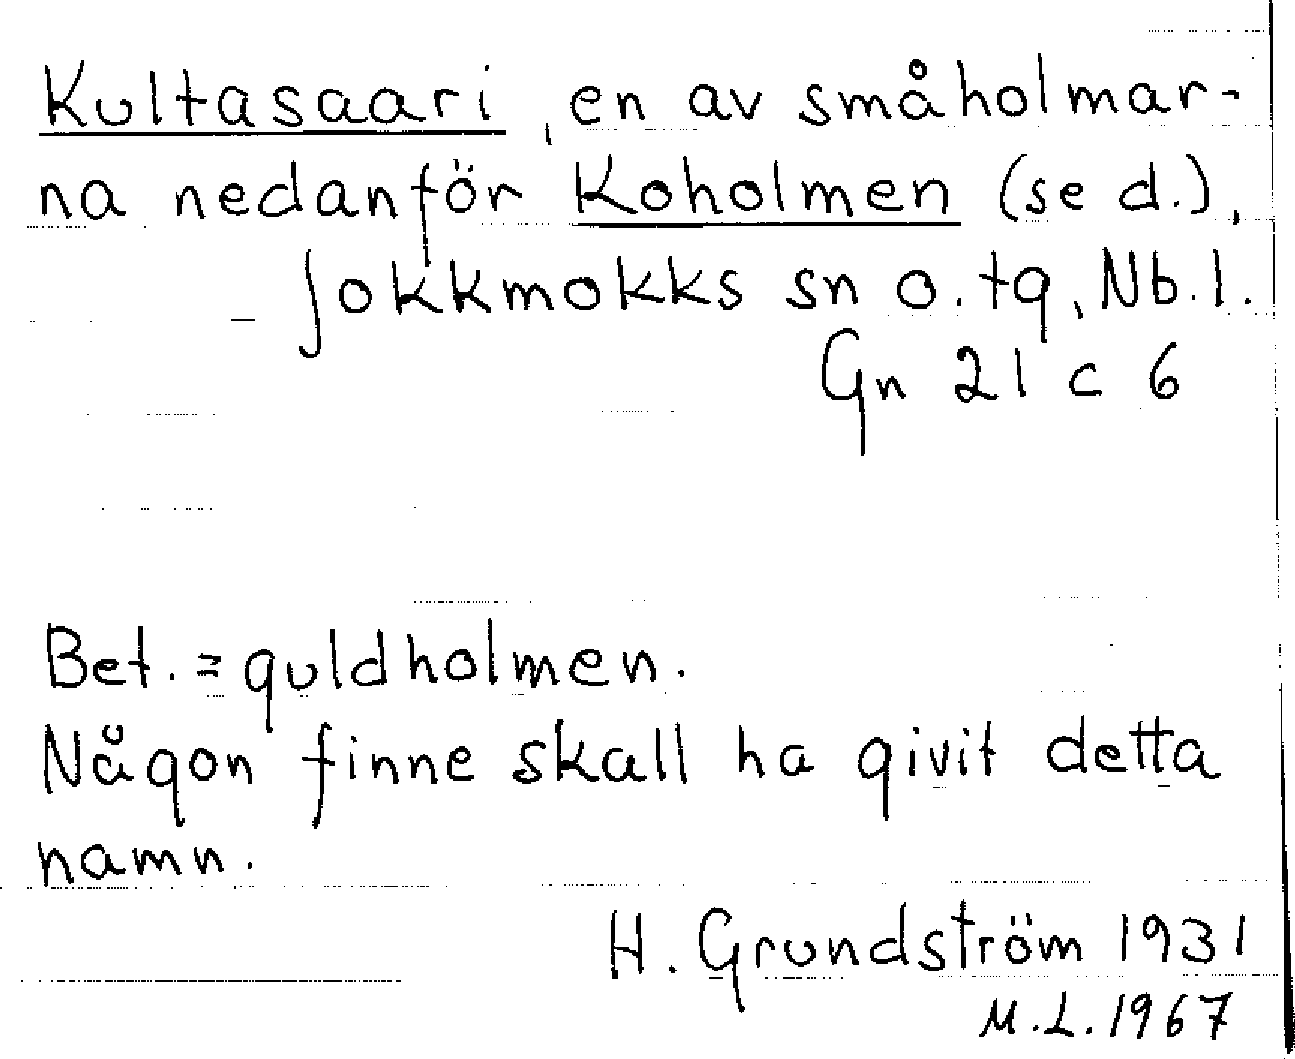 Kultasaari, en av småholmar-
na nedanför Koholmen (se d.),
Jokkmokks sn o. tg, Nb. l.
Gn 21 c 6
Bet. = guldholmen.
Någon finne skall ha givit detta
namn.
H. Grundström 1931
M.L. 1967